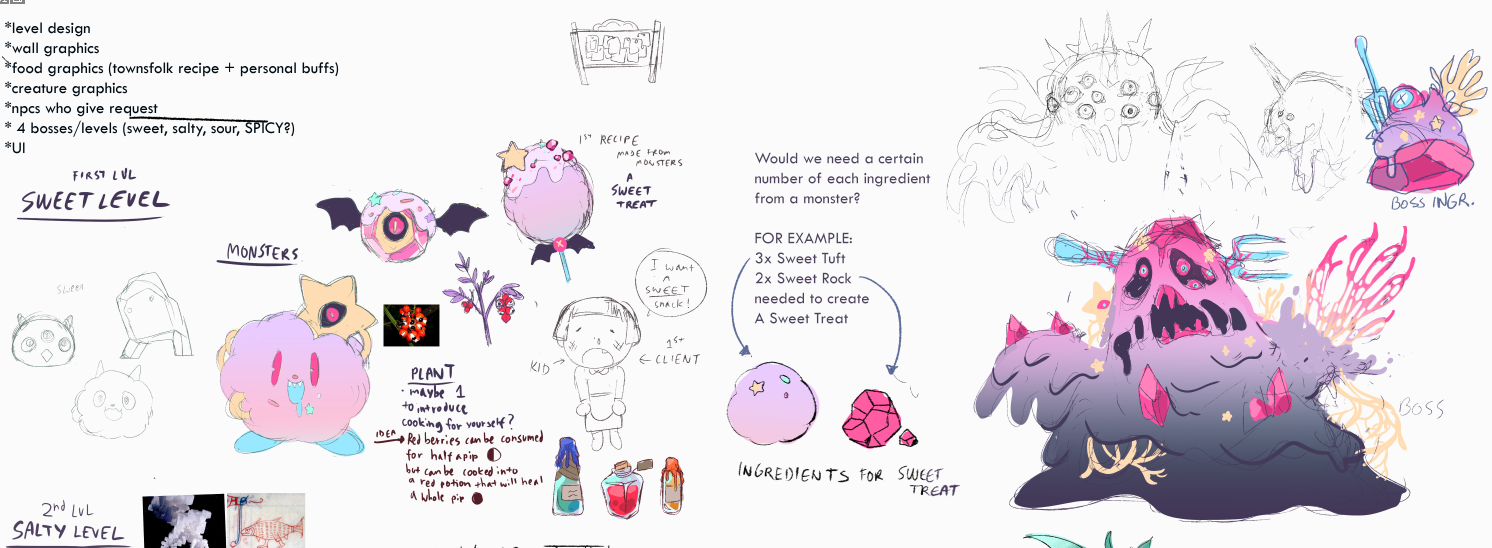 *level design
*wall graphics
*food graphics (townsfolk recipe + personal buffs)
*creature graphics
*npcs who give request
* 4 bosses/levels (sweet, salty, sour, SPICY?)
*UI
FIRST LVL
SWEET LEVEL
MONSTERS
SWEET
1ST RECIPE
MADE FROM
MONSTERS
A
SWEET
TREAT
I want
a
SWEET
snack!
KID
1ST
CLIENT
PLANT
• maybe 1
to introduce
cooking for yourself?
IDEA
Red berries can be consumed
for half a pip
but can be cooked into
a red potion that will heal
a whole pip
Would we need a certain
number of each ingredient
from a monster?
FOR EXAMPLE:
3x Sweet Tuft
2x Sweet Rock
needed to create
A Sweet Treat
INGREDIENTS FOR SWEET
TREAT
BOSS INGR.
BOSS
2nd LVL
SALTY LEVEL